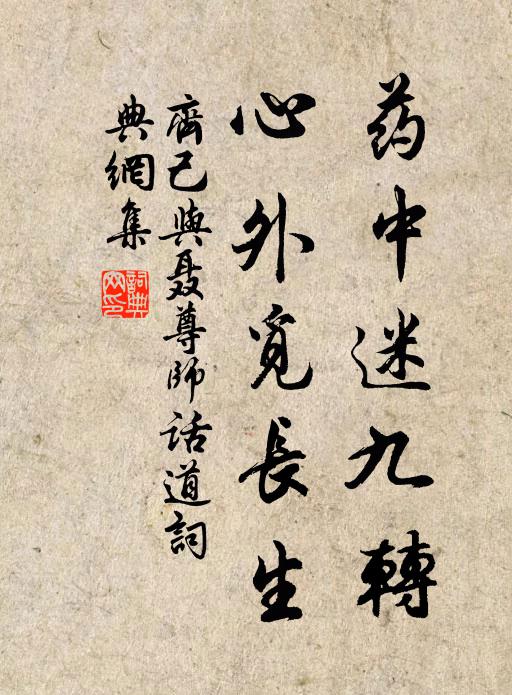 药中迷九轉
心外覓長生
齊己與聂尊師话道詞
典網集
詞典网印